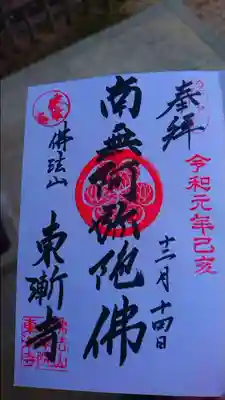 奉拝
令和元年己亥
十二月十四日
南無阿弥陀佛
佛法山
東漸寺